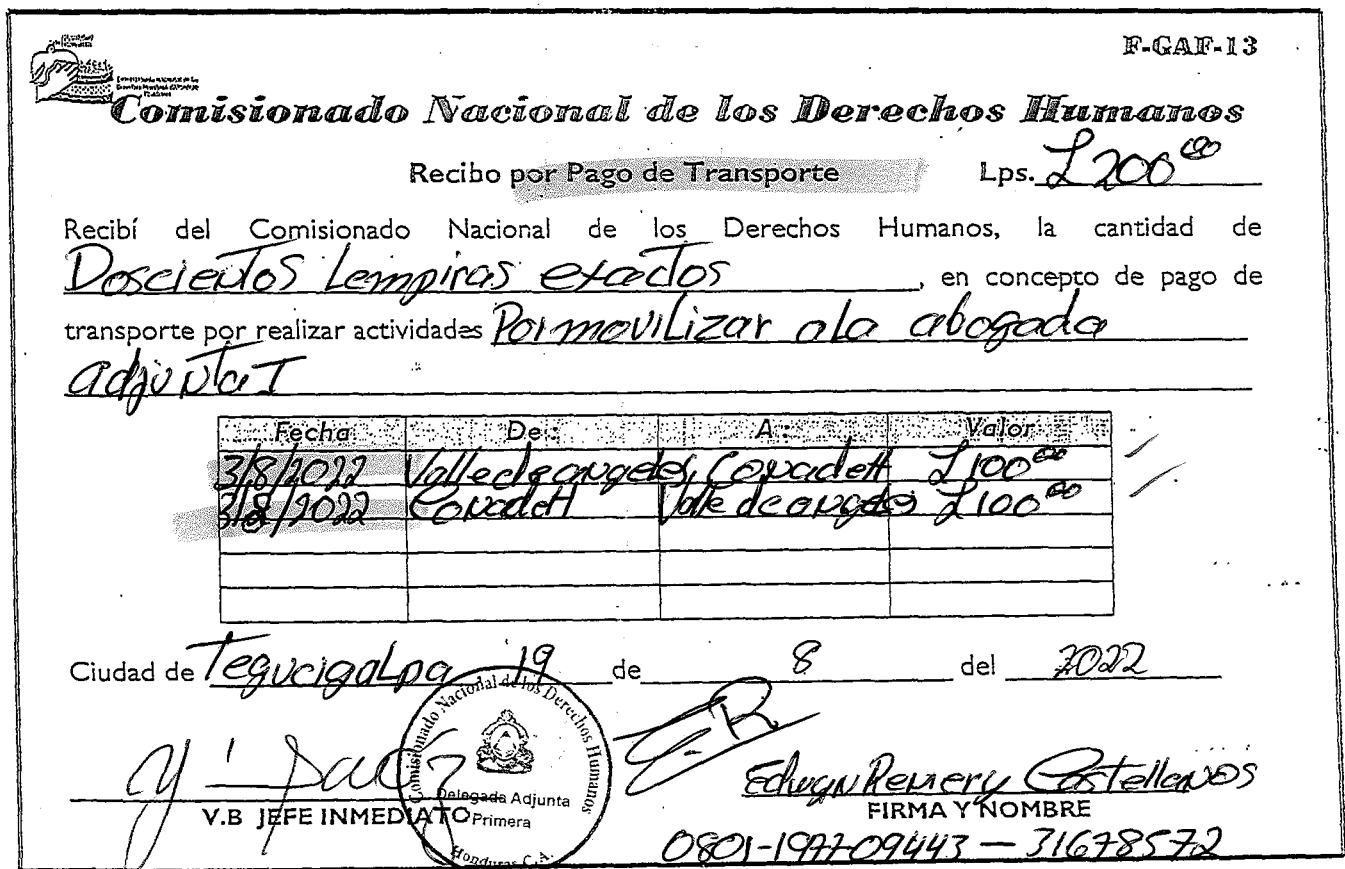 F-GAF-13
Comisionado Nacional de los Derechos Humanos
Recibo por Pago de Transporte Lps. L 200.00
Recibí del Comisionado Nacional de los Derechos Humanos, la cantidad de
Doscientos Lempiras exactos, en concepto de pago de
transporte por realizar actividades Por moviLizar a la abogada
adjunta I
Fecha De: A: Valor
3/8/2022 Valle de angeles Conadeh L 100.00
3/8/2022 Conadeh Valle de angeles L 100.00
Ciudad de TegucigaLpa 19 de 8 del 2022
Comisionado Nacional de los Derechos Humanos
Delegada Adjunta
Primera
Honduras C.A.
V.B JEFE INMEDIATO
Castellanos
FIRMA Y NOMBRE
0801-1977-09443 — 31678572